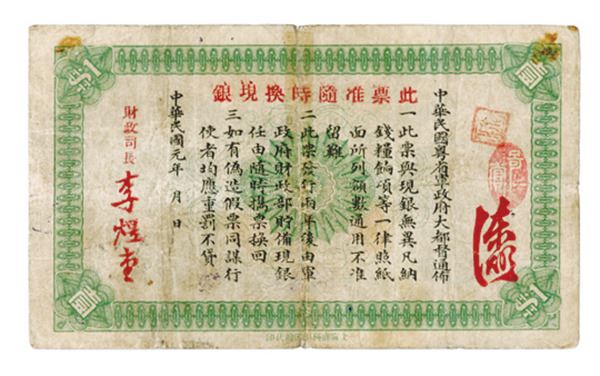 此票准隨時換現銀
中華民國粵省軍政府大都督通佈
一此票與現銀無異凡納
錢糧餉項等一律照紙
面所列額數通用不准
留難
二此票發行兩年後由軍
政府財政部貯備現銀
任由隨時攜票換回
三如有偽造假票同謀行
使者均應重罰不貸
中華民國元年 月 日
財政司長
李煜堂
圓
1
圓
1